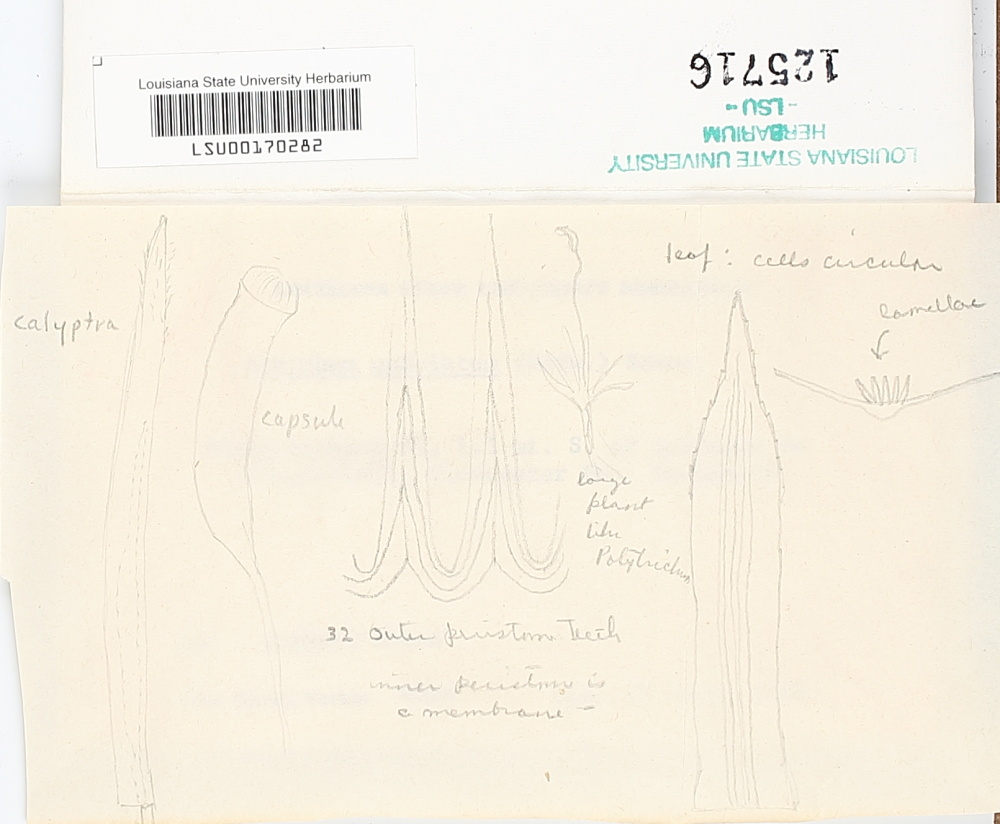 Louisiana State University Herbarium
LSU00170282
125716
- LSU -
HERBARIUM
LOUISIANA STATE UNIVERSITY
leaf : cells circular
lamellae
calyptra
capsule
large
plant
like
Polytrichum
32 outer peristome Teeth
inner peristome is
a membrane -